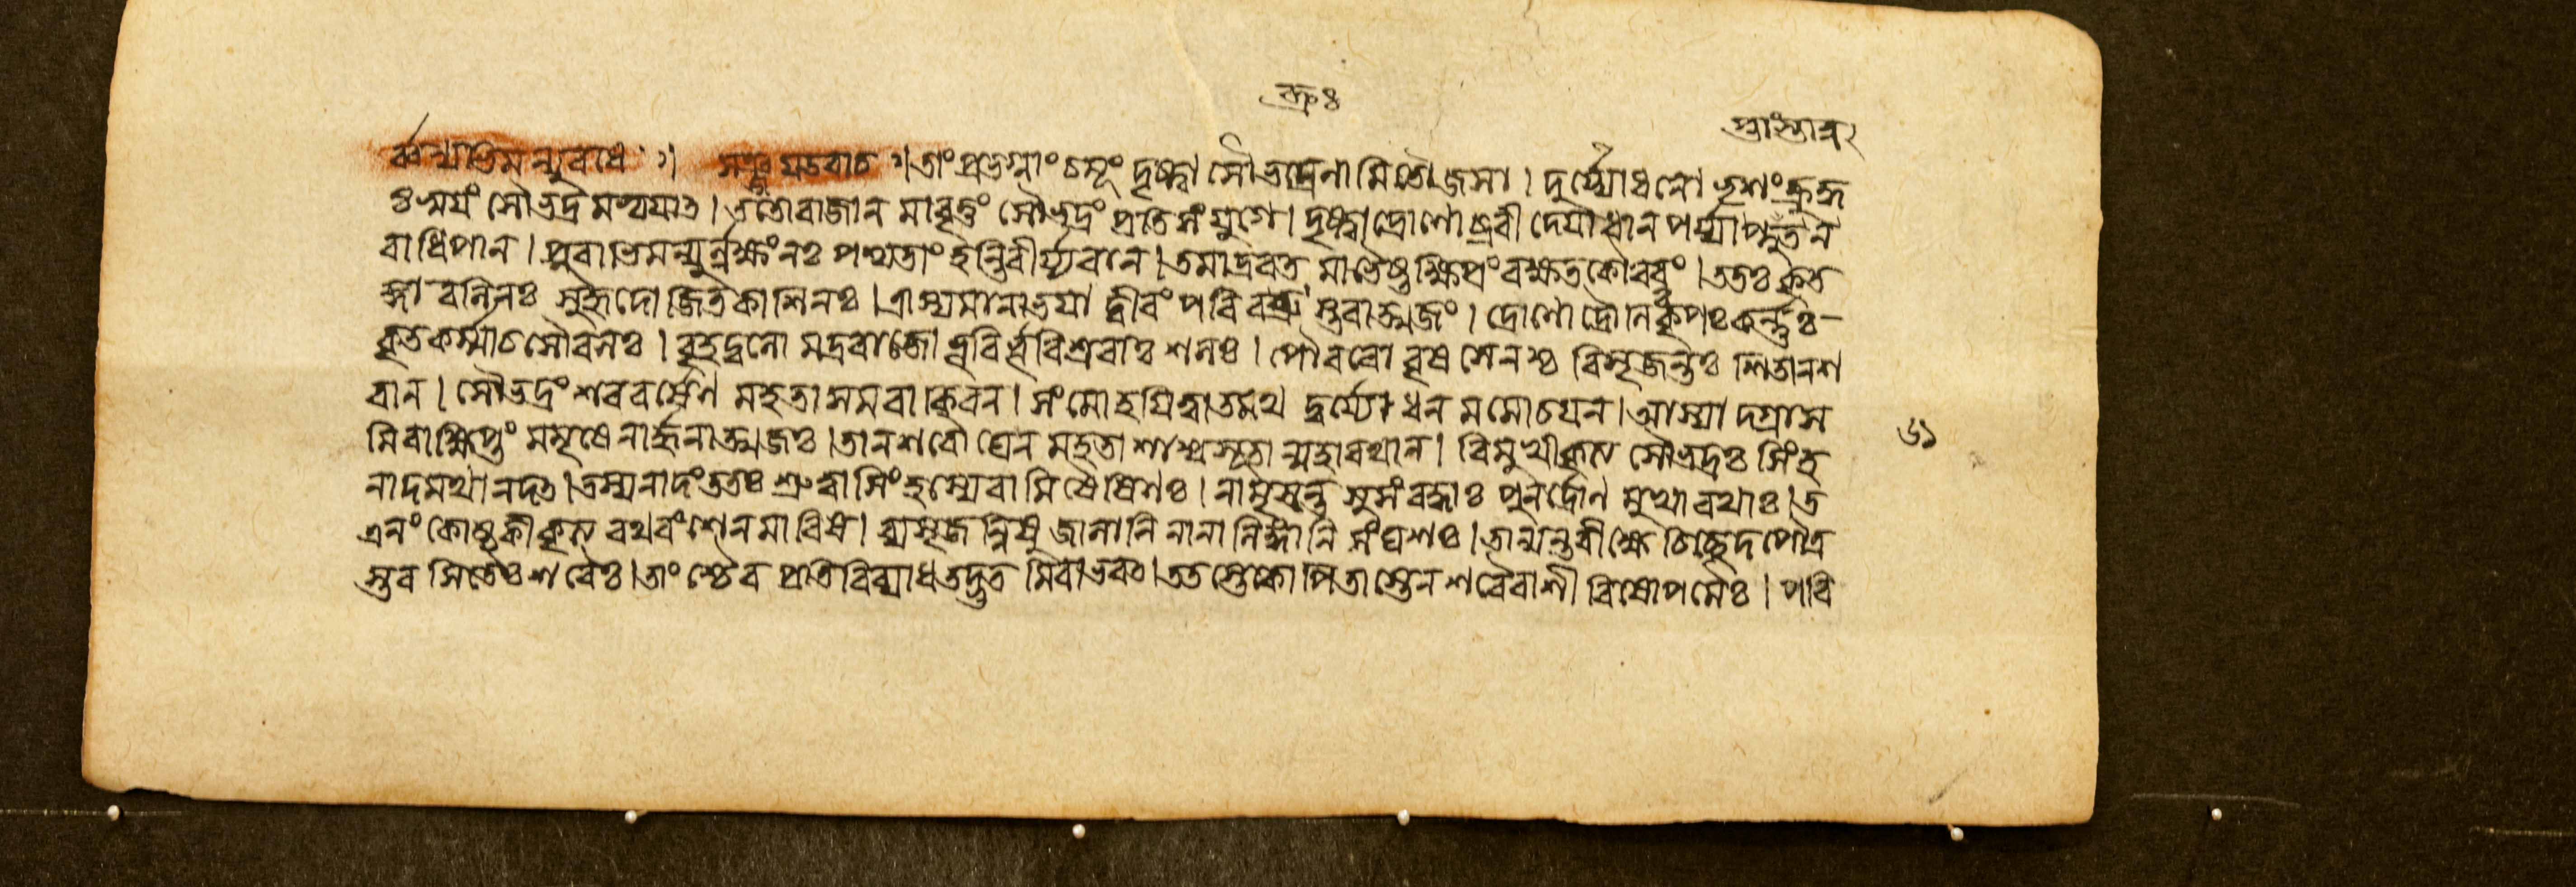 র্ব্বন্যভিমন্যুবধে ঃ। সঞ্জয় উবাচ ঃ। তাং প্রভগ্নাং চমূং দৃষ্ট্বা সৌভদ্রেনামিতৌজসা। দুর্য্যোধনো ভৃশং ক্রুদ্ধ
ঃ স্বয়ং সৌভদ্রমভ্যয়াত। ততো রাজানমাবৃত্তং সৌভদ্রং প্রতি সংযুগে। দৃষ্ট্বা দ্রোণোব্রবীদেযাধান পর্য্যাপ্নুত ন
রাধিপান। পুরাভিমন্যুর্ল্লক্ষং নঃ পশ্যতাং হন্তি বীর্য্যবানে। তমাদ্রবত মাভৈষ্ট ক্ষিপ্রং রক্ষত কৌরবং। ততঃ কৃত
জ্ঞা বলিনঃ সুহৃদো জিতকাশিনঃ। ত্রাস্যমানা ভয়াদ্বীরং পরিবব্রুস্তবাত্মজং। দ্রোণো দ্রৌণিঃ কৃপঃ কর্ন্নঃ
কৃতকর্ম্মা চ সৌবলঃ। বৃহদ্বলো মদ্ররাজো ভূরির্ভূরিশ্রবাঃ শলঃ। পৌরবো বৃষসেনশ্চ বিসৃজন্তঃ শিতান শ
রান। সৌভদ্রং শরবর্ষেণ মহতা সমবাকিরন। সংমোহয়িত্বা তমথ দুর্য্যোধনমমোচয়ন। আস্যাদগ্রাস
মিবাক্ষিপ্তং মমৃষে নার্জ্জুনাত্মজঃ। তান শরৌঘেন মহতা শাশ্বসূতান্মহারথান। বিমুখীকৃত্য সৌভদ্রঃ সিংহ
নাদমথানদত। তস্য নাদং ততঃ শ্রুত্বা সিংহস্যেবামিষৈষিণঃ। নামৃষ্যন্ত সুসংরব্ধাঃ পুনর্দ্রোণমুখা রথাঃ। ত
এনং কোষ্ঠকীকৃত্য রথবংশেন মারিষ। ব্যসৃজন্নিষুজালানি নানালিঙ্গানি সংঘশঃ। তান্যন্তরীক্ষে চিচ্ছেদ পৌত্র
স্তব শিতৈঃ শরৈঃ। তাংশ্চৈব প্রতিবিব্যাধ তদদ্ভুতমিবাভবৎ। ততস্তে কোপিতাস্তেন শরৈরাশীবিষোপমৈঃ। পরি
৬১